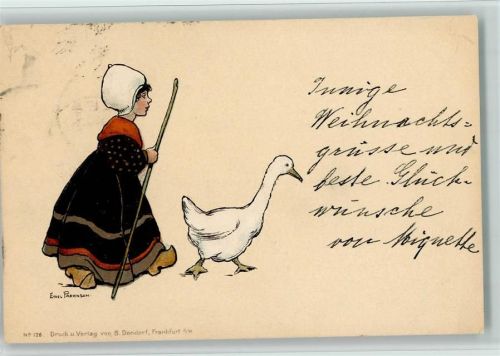 Innige
Weihnachts=
grüsse und
beste Glück-
wünsche
von Mignette
ETHEL PARKINSON
No 126 Druck u Verlag von B. Dondorf, Frankfurt a/M